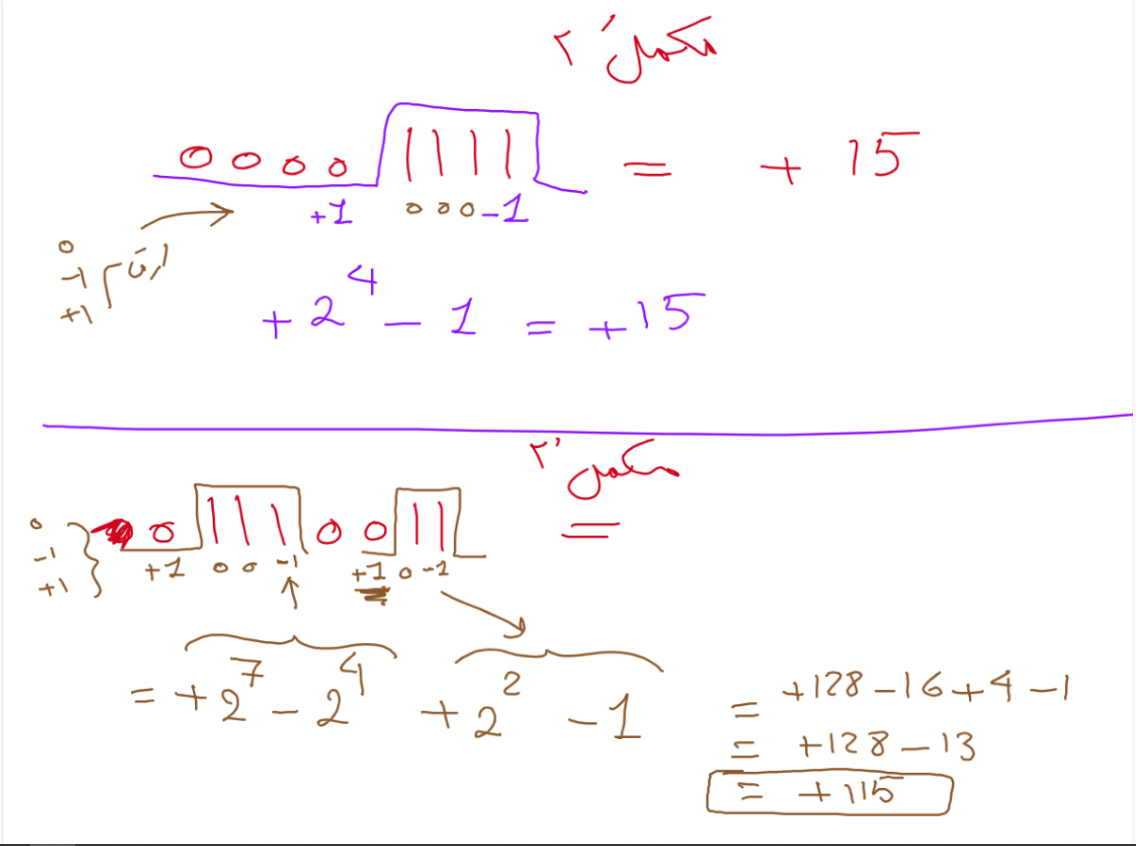 مکمل ۲'
0 0 0 0 1 1 1 1 = + 15
+1 0 0 0 -1
0
-1
+1
ارقام
+2⁴ - 1 = +15
مکمل ۲'
0 1 1 1 0 0 1 1 =
0
-1
+1
+1 0 0 -1 +1 0 -1
= +2⁷ - 2⁴ +2² - 1
= +128 - 16 + 4 - 1
= +128 - 13
= +115